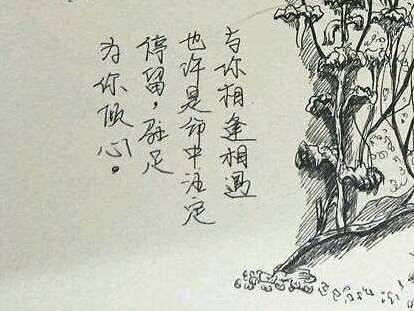 与你相逢相遇
也许是命中注定
停留,驻足
为你倾心。